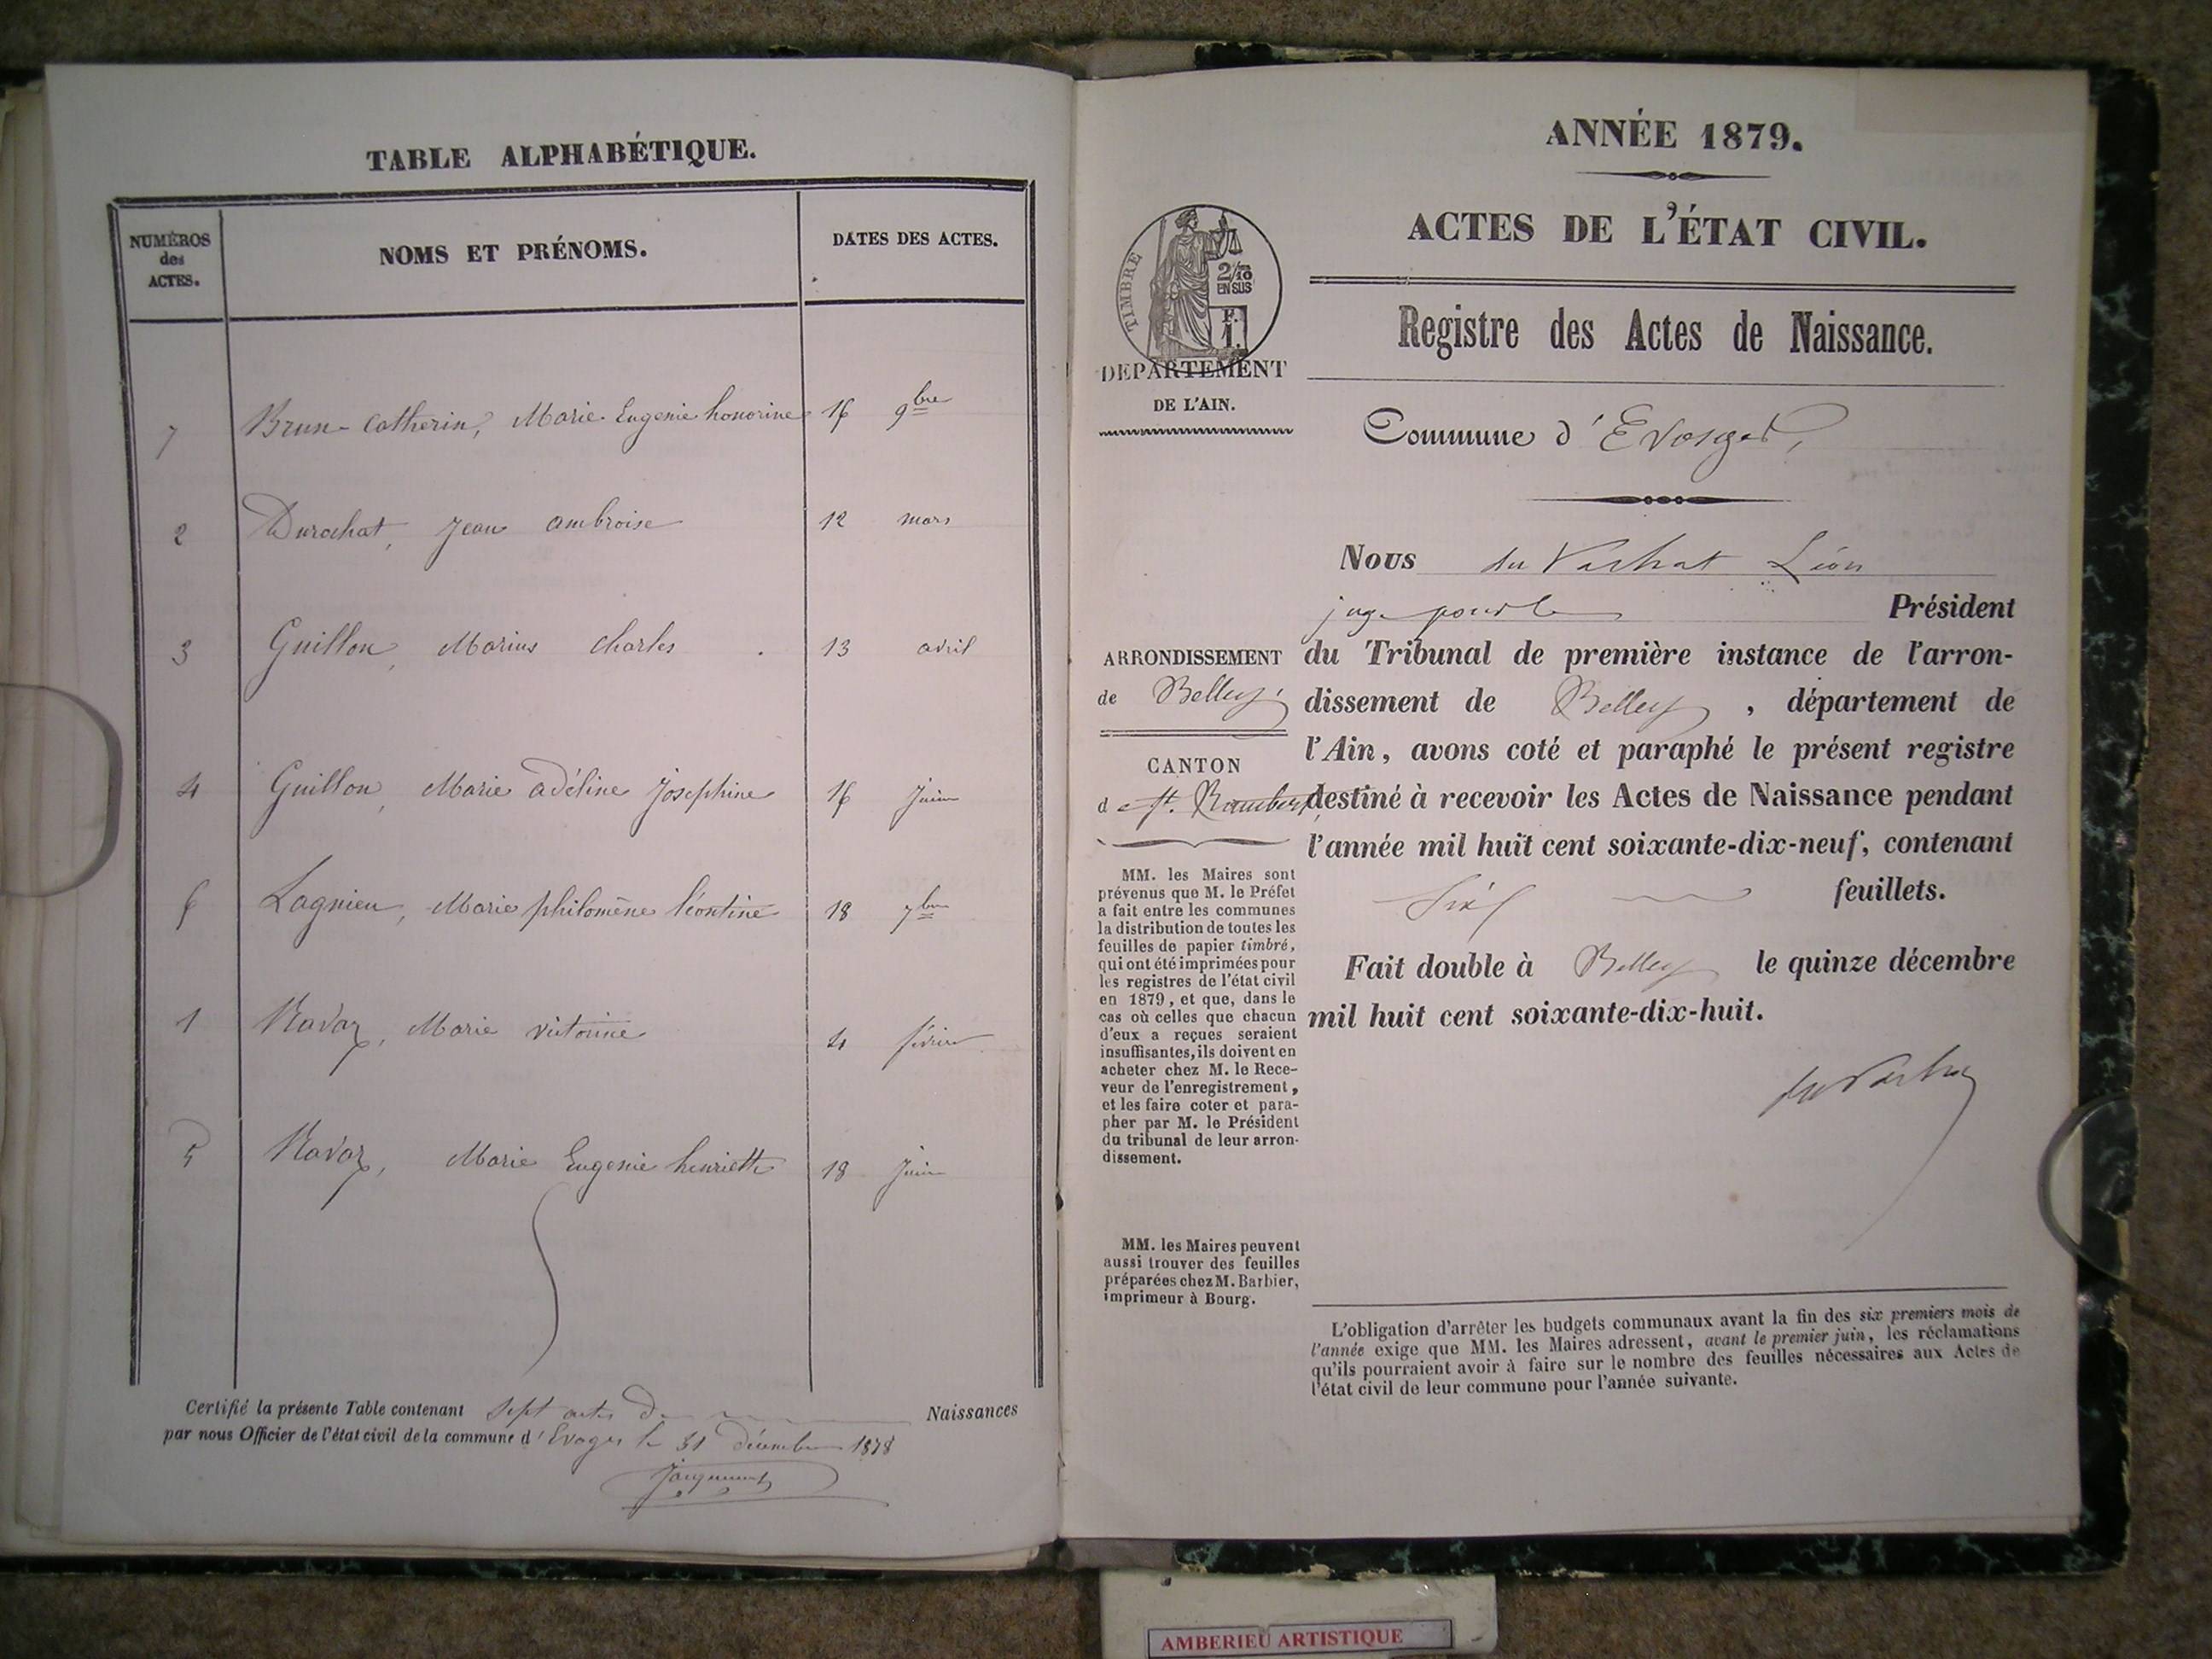 TABLE ALPHABÉTIQUE.
NUMÉROS des ACTES.
NOMS ET PRÉNOMS.
DATES DES ACTES.
7 Brun-Catherin, Marie Eugenie honorine 16 9bre
2 Durochat, Jean ambroise 12 mars
3 Guillon, Marius charles 13 avril
4 Guillon, Marie adéline Josephine 16 Juin
6 Lagnieu, Marie philomène léontine 18 7bre
1 Ravaz, Marie victorine 4 février
5 Ravaz, Marie Eugenie henriette 18 Juin
Certifié la présente Table contenant Sept actes de Naissances
par nous Officier de l'état civil de la commune d'Evoges le 31 décembre 1878
ANNÉE 1879.
ACTES DE L'ÉTAT CIVIL.
Registre des Actes de Naissance.
TIMBRE
2/10
EN SUS
F.
1.
DEPARTEMENT
DE L'AIN.
Commune d'Evosges,
Nous du Vachat Léon
juge pour le Président
du Tribunal de première instance de l'arron-
dissement de Belley, département de
l'Ain, avons coté et paraphé le présent registre
destiné à recevoir les Actes de Naissance pendant
l'année mil huit cent soixante-dix-neuf, contenant
Six feuillets.
Fait double à Belley le quinze décembre
mil huit cent soixante-dix-huit.
du Vachat
ARRONDISSEMENT
de Belley,
CANTON
de St. Rambert,
MM. les Maires sont
prévenus que M. le Préfet
a fait entre les communes
la distribution de toutes les
feuilles de papier timbré,
qui ont été imprimées pour
les registres de l'état civil
en 1879, et que, dans le
cas où celles que chacun
d'eux a reçues seraient
insuffisantes, ils doivent en
acheter chez M. le Rece-
veur de l'enregistrement,
et les faire coter et para-
pher par M. le Président
du tribunal de leur arron-
dissement.
MM. les Maires peuvent
aussi trouver des feuilles
préparées chez M. Barbier,
imprimeur à Bourg.
L'obligation d'arrêter les budgets communaux avant la fin des six premiers mois de
l'année exige que MM. les Maires adressent, avant le premier juin, les réclamations
qu'ils pourraient avoir à faire sur le nombre des feuilles nécessaires aux Actes de
l'état civil de leur commune pour l'année suivante.
AMBERIEU ARTISTIQUE